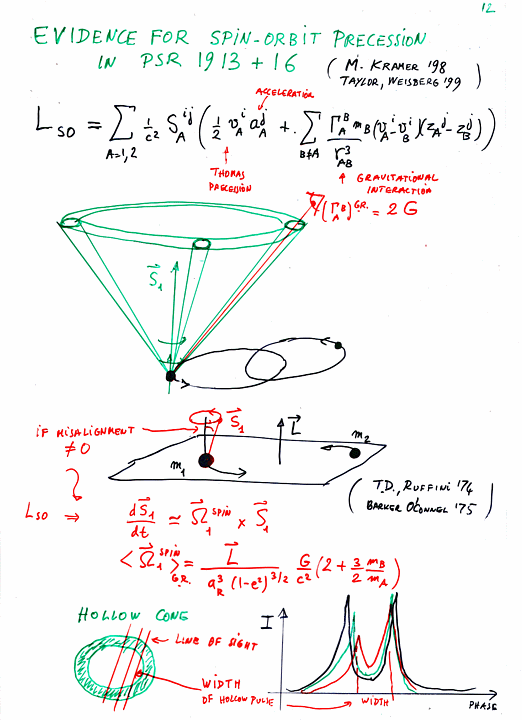 12
EVIDENCE FOR SPIN-ORBIT PRECESSION
IN PSR 1913+16 ( M. KRAMER '98
TAYLOR, WEISBERG '99 )
ACCELERATION
L_SO = Σ_{A=1,2} 1/c² S_A^{ij} ( 1/2 v_A^i a_A^j + Σ_{B≠A} Γ_A^B m_B / r_AB^3 (v_A^i - v_B^i)(z_A^j - z_B^j) )
THOMAS
PRECESSION
GRAVITATIONAL
INTERACTION
(Γ_A^B)^{G.R.} = 2 G
S⃗_1
IF MISALIGNMENT
≠ 0
S⃗_1
L⃗
m_1
m_2
( T.D., RUFFINI '74
BARKER O'CONNEL '75 )
L_SO ⇒ dS⃗_1/dt ≃ Ω⃗_1^{SPIN} × S⃗_1
< Ω⃗_1^{SPIN} >_{G.R.} = L⃗ / a_R^3 (1-e²)^{3/2} G/c² (2 + 3/2 m_B/m_A)
HOLLOW CONE
LINE OF SIGHT
WIDTH
OF HOLLOW PULSE
I
WIDTH
PHASE